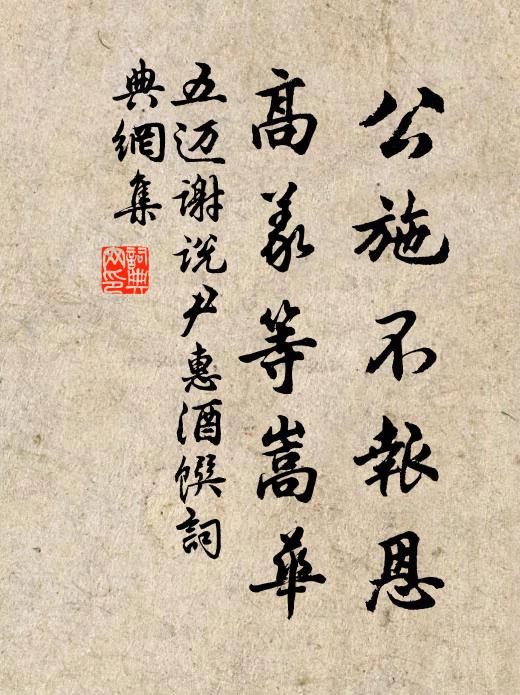 公施不報恩
高義等嵩華
五迈謝说尹惠酒饌詞
典網集
詞典